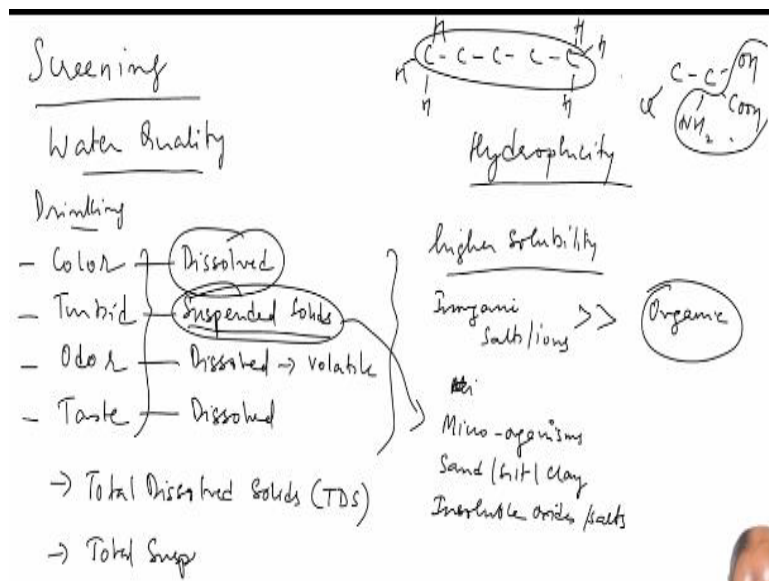 Screening
Water Quality
Drinking
- Color - Dissolved
- Turbid - Suspended Solids
- Odor - Dissolved → Volatile
- Taste - Dissolved
→ Total Dissolved Solids (TDS)
→ Total Susp
H H H
C - C - C - C - C
H H H
C - C - OH
NH2 COOH
Hydrophicity
higher solubility
Inorganic
Salts/ions >> Organic
Micro-oganisms
Sand/silt/clay
Insoluble oxides/salts